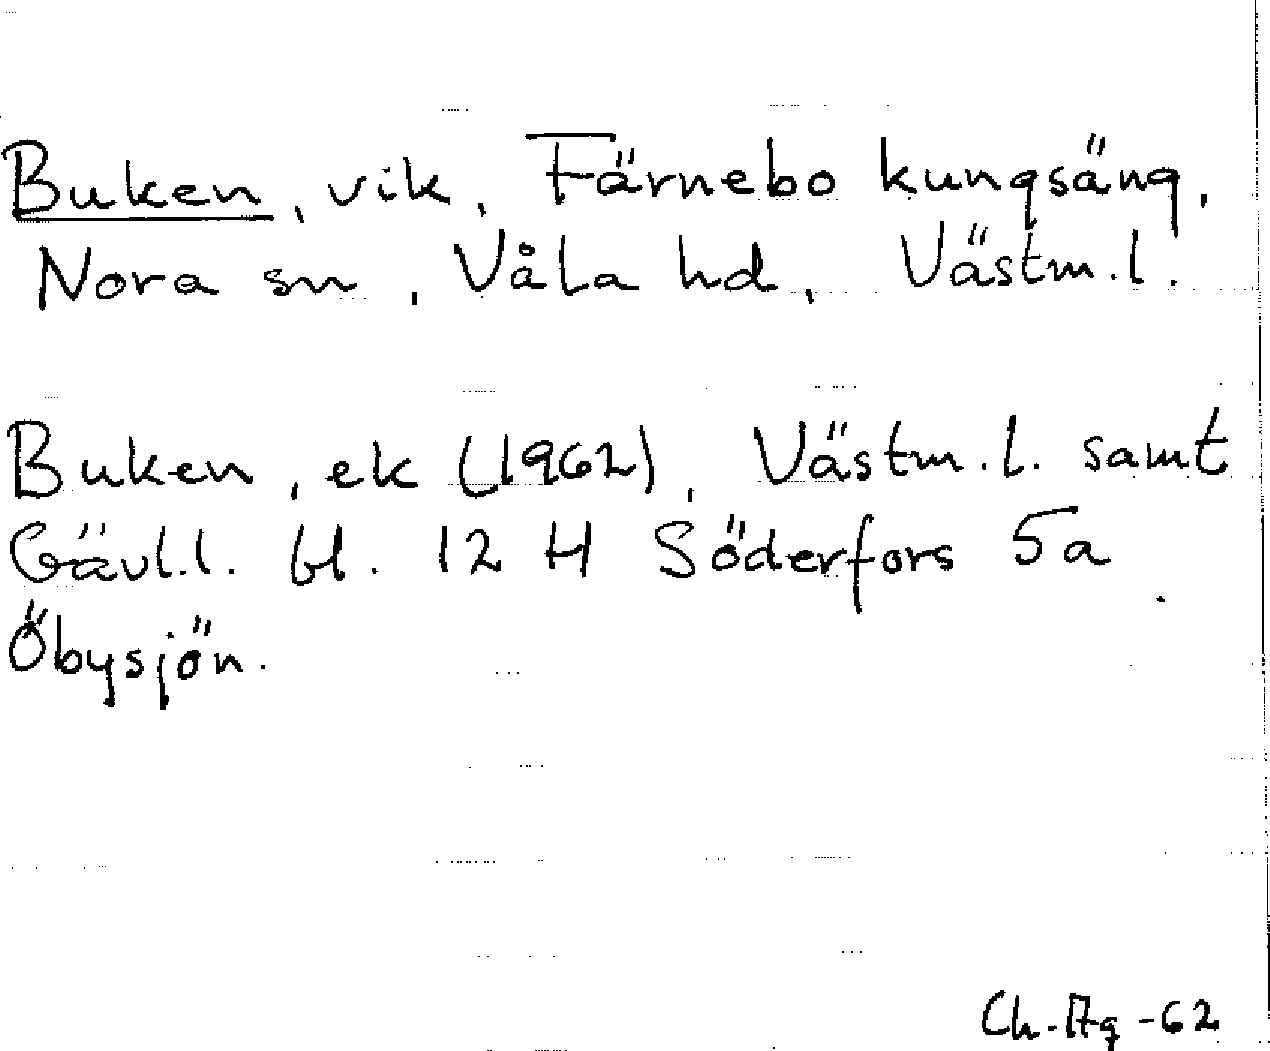 Buken, vik, Färnebo kungsäng,
Nora sn, Våla hd, Västm.l.
Buken, ek (1962), Västm.l. samt
Gävl.l. bl. 12 H Söderfors 5a
Öbysjön.
Ch. Ag -62